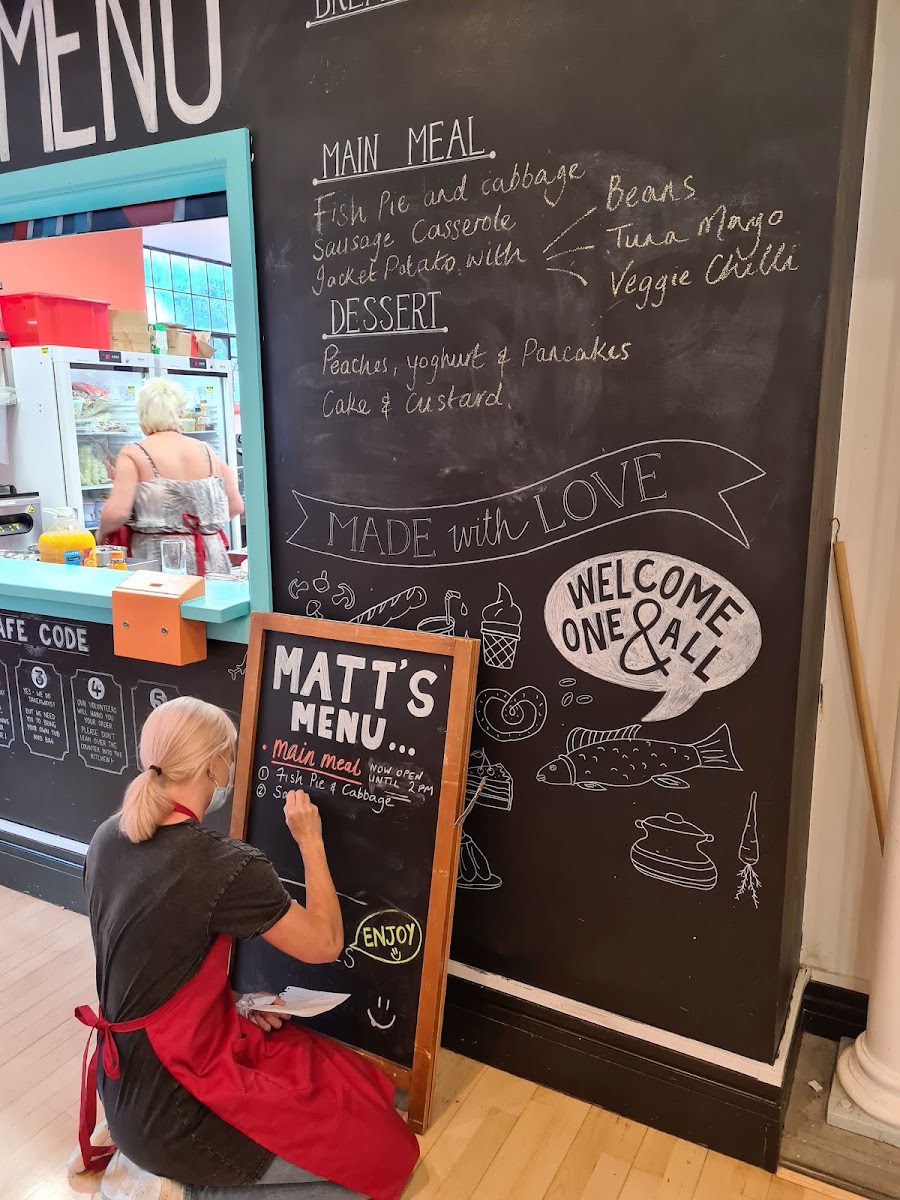 MENU
MAIN MEAL
Fish Pie and cabbage
Sausage Casserole
Jacket Potato with
Beans
Tuna Mayo
Veggie Chilli
DESSERT
Peaches, yoghurt & Pancakes
Cake & Custard.
MADE with LOVE
WELCOME
ONE & ALL
AFE CODE
3
YES - WE DO
TAKEAWAYS!
BUT WE NEED
YOU TO BRING
YOUR OWN TUB
AND BAG
4
OUR VOLUNTEERS
WILL HAND YOU
YOUR ORDER
PLEASE DON'T
LEAN OVER THE
COUNTER INTO THE
KITCHEN!
5
MATT'S
MENU...
main meal
NOW OPEN
UNTIL 2PM
1 Fish Pie & Cabbage
2 Sa
ENJOY